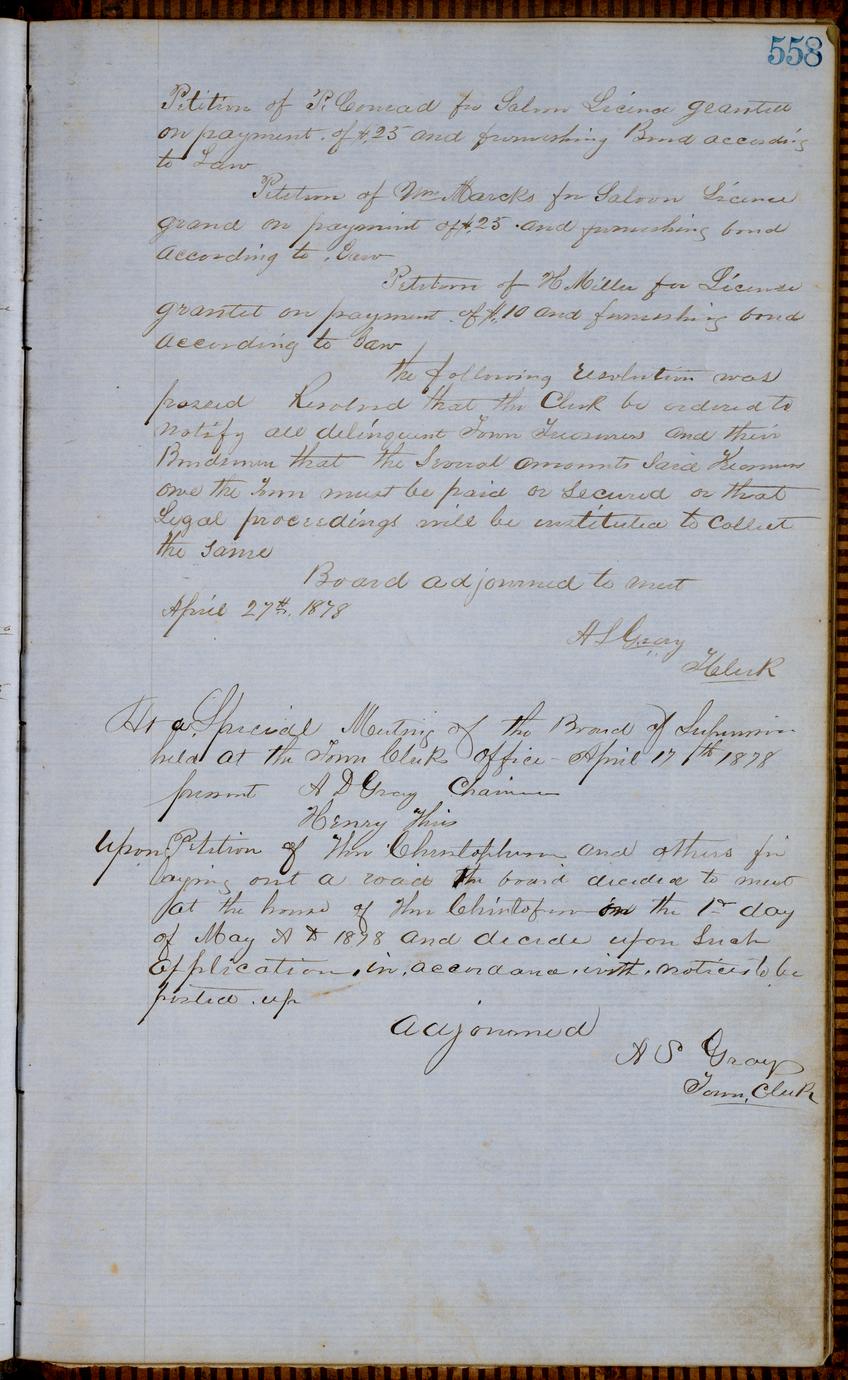 558
Petition of P. Conrad for Saloon Licence granted
on payment of $25 and furnishing Bond according
to Law
Petition of Wm Marcks for Saloon Licence
grand on payment of $25 and furnishing bond
according to Law
Petition of H Miller for License
grantet on payment of $10 and furnishing bond
according to Law
the following resolution was
passed Resolved that the Clerk be ordered to
notify all delinquent Town Treasurers and their
Bondsmen that the Several amounts Said
owe the Town must be paid or Secured or that
Legal proceedings will be instituted to Collect
the Same
Board adjourned to meet
April 27th, 1878
A S Gray
T Clerk
At a Special Meeting of the Board of Supervisors
held at the Town Clerks office - April 17th 1878
present A D Gray Chairman
Henry
Upon Petition of Wm Christopherson and others for
laying out a road the board decided to meet
at the house of Wm on the 1st day
of May A D 1878 and decide upon Such
Application, in accordance with notices to be
posted up
Adjourned
A S Gray
Town Clerk